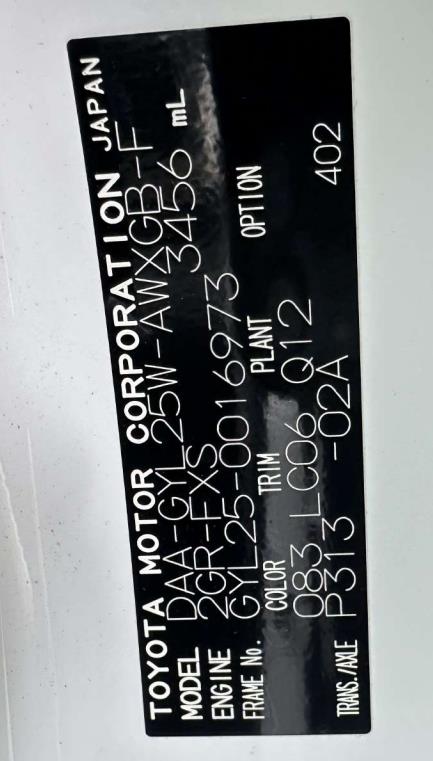 TOYOTA MOTOR CORPORATION JAPAN
MODEL DAA-GYL25W-AWXGB-F
ENGINE 2GR-FXS 3456 mL
FRAME No. GYL25-0016973
COLOR TRIM PLANT OPTION
083 LC06 Q12
TRANS./AXLE P313 -02A 402